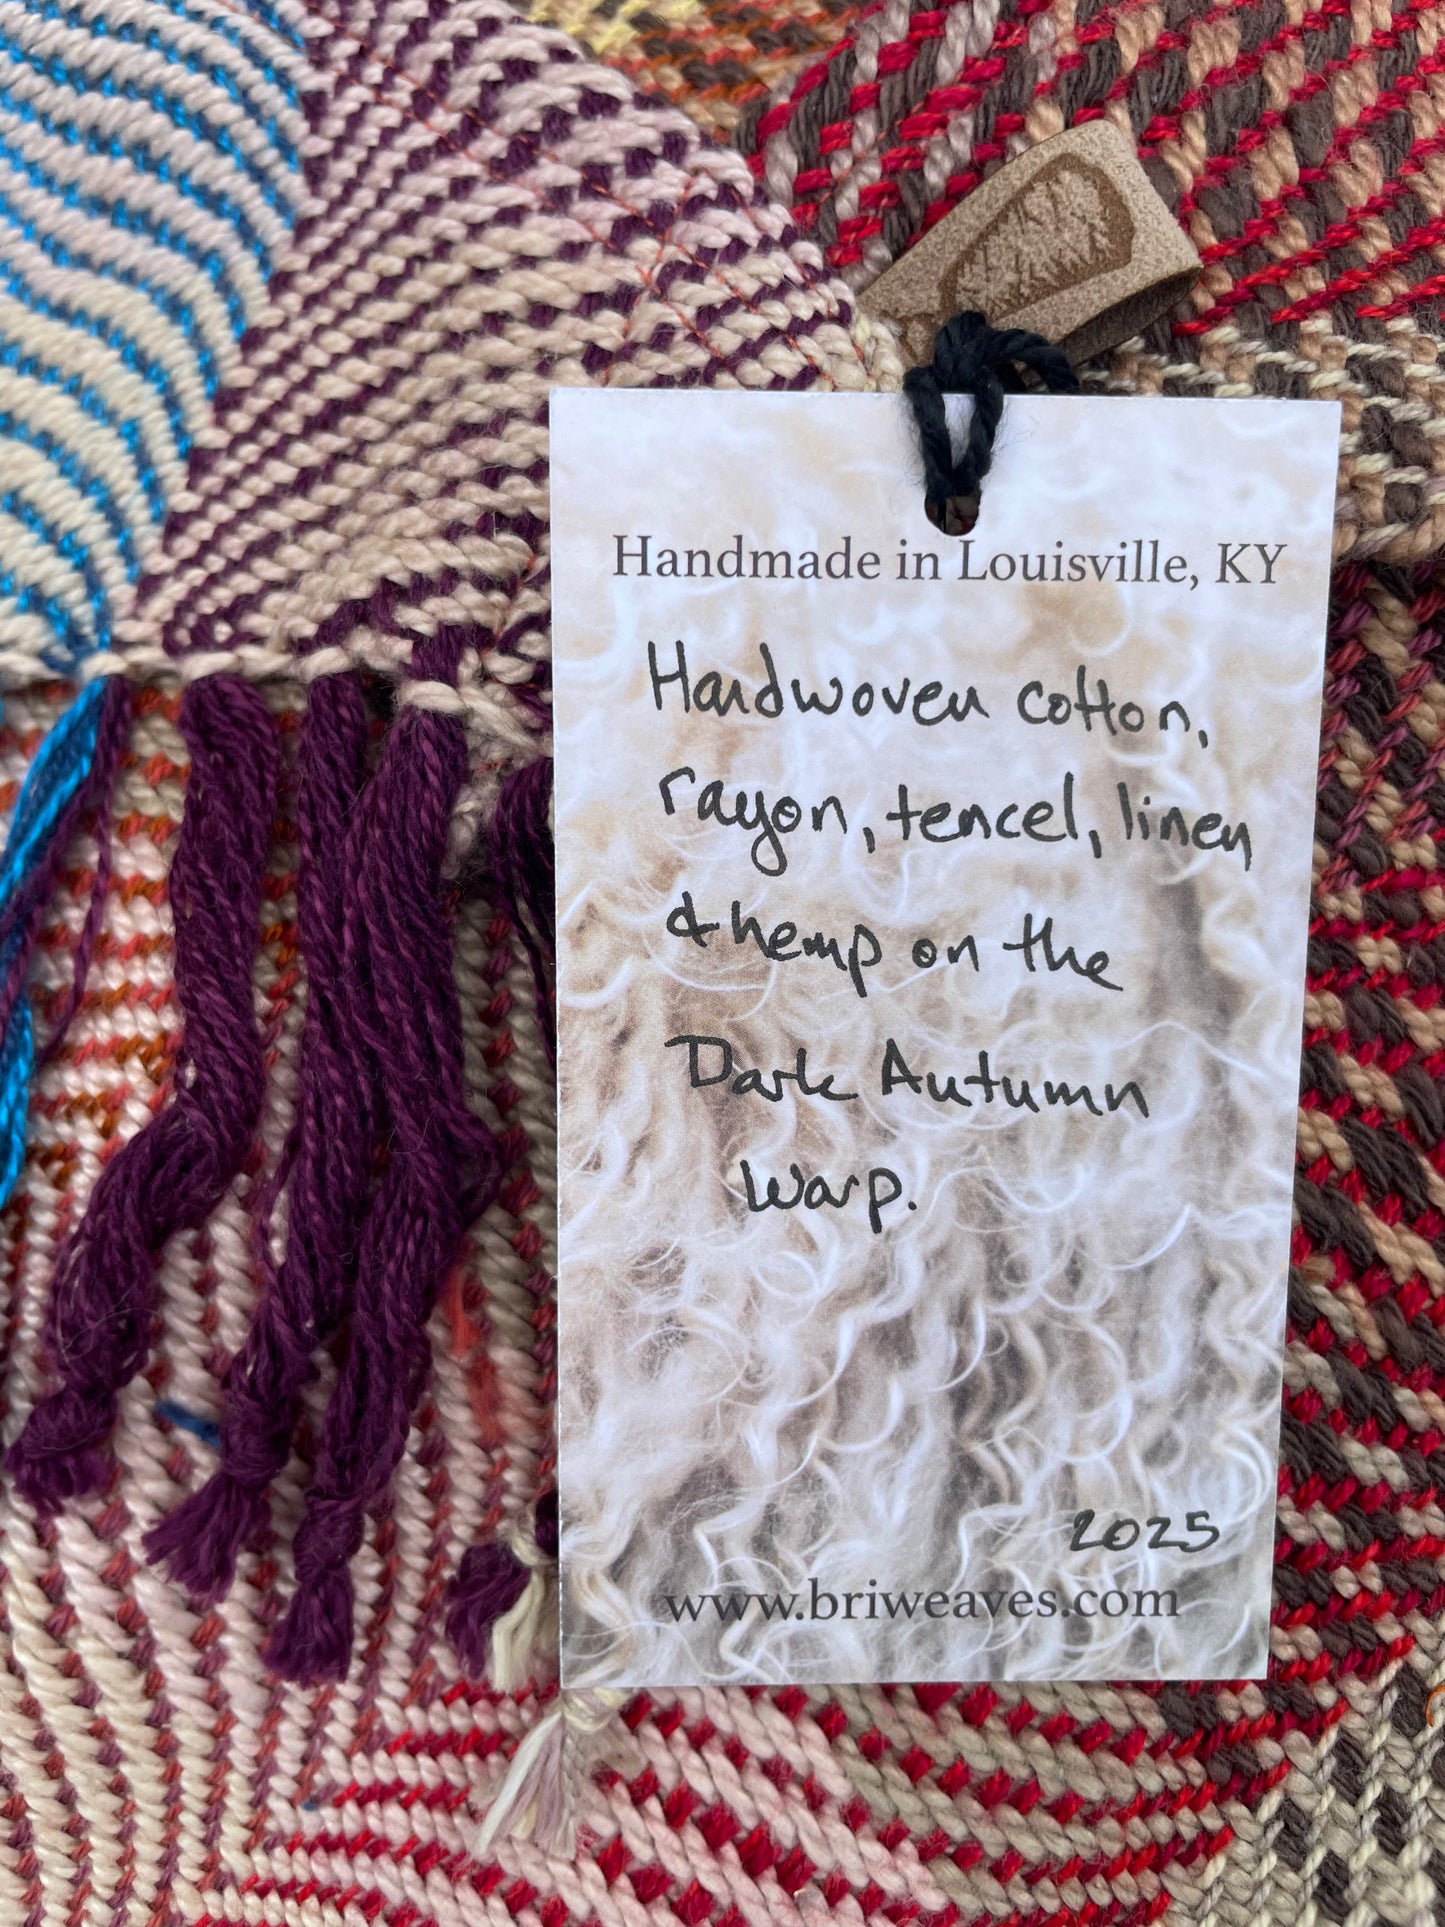 Handmade in Louisville, KY
Handwoven cotton,
rayon, tencel, linen
& hemp on the
Dark Autumn
warp.
2025
www.briweaves.com